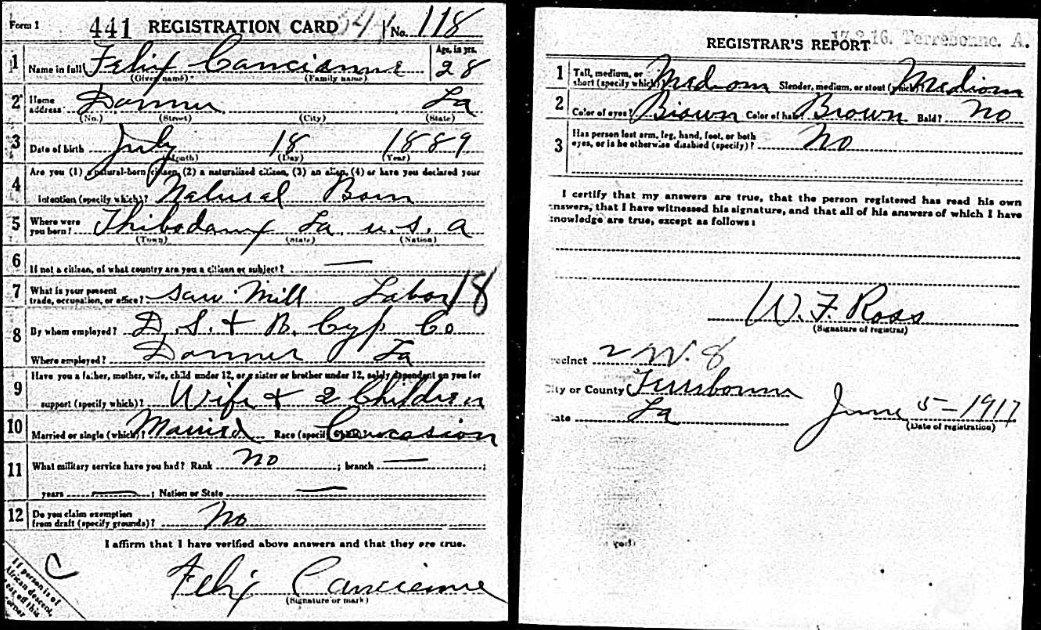 Form 1 441 REGISTRATION CARD No. 118
1 Name in full Felix Cancienne Age, in yrs. 28
(Given name) (Family name)
2 Home address Donner La
(No.) (Street) (City) (State)
3 Date of birth July 18 1889
(Month) (Day) (Year)
4 Are you (1) a natural-born citizen, (2) a naturalized citizen, (3) an alien, (4) or have you declared your
intention (specify which)? Natural Born
5 Where were you born? Thibodaux La U.S.A
(Town) (State) (Nation)
6 If not a citizen, of what country are you a citizen or subject? —
7 What is your present trade, occupation, or office? Saw Mill Labor 18
8 By whom employed? D. S. + B. Cyp Co
Where employed? Donner La
9 Have you a father, mother, wife, child under 12, or a sister or brother under 12, solely dependent on you for
support (specify which)? Wife + 2 Children
10 Married or single (which)? Married Race (specify which)? Caucasion
11 What military service have you had? Rank No ; branch — ;
years — ; Nation or State —
12 Do you claim exemption from draft (specify grounds)? No
I affirm that I have verified above answers and that they are true.
C
Felix Cancienne
(Signature or mark)
If person is of
African descent,
tear off this
corner
17-3-16. Terrebonne. A.
REGISTRAR'S REPORT
1 Tall, medium, or short (specify which)? Mediom Slender, medium, or stout (which)? Mediom
2 Color of eyes? Brown Color of hair? Brown Bald? No
3 Has person lost arm, leg, hand, foot, or both
eyes, or is he otherwise disabled (specify)? No
I certify that my answers are true, that the person registered has read his own
answers, that I have witnessed his signature, and that all of his answers of which I have
knowledge are true, except as follows:
W. F. Ross
(Signature of registrar)
Precinct 2 W. 8
City or County Terrebonne
State La June 5-1917
(Date of registration)